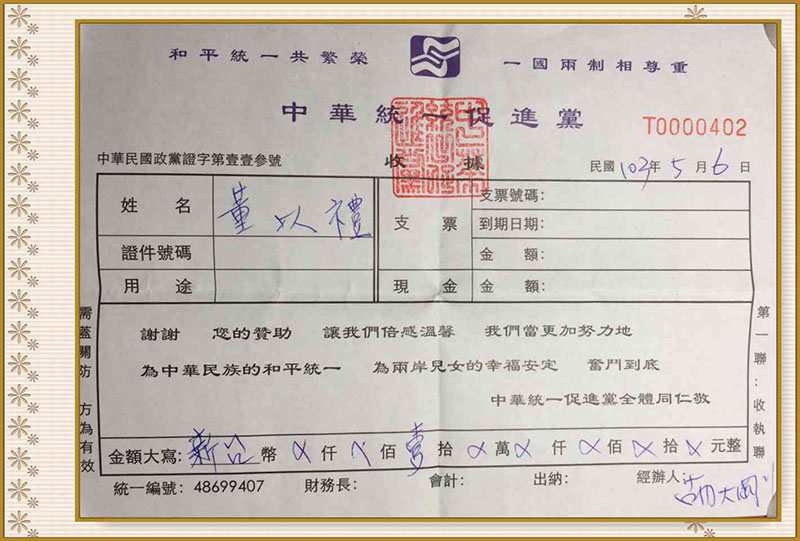 和平統一共繁榮 一國兩制相尊重
中華統一促進黨
T0000402
中華民國政黨證字第壹壹參號 收據 民國103年5月6日
姓名 董以禮 支票 支票號碼：
到期日期：
證件號碼 金額：
用途 現金 金額：
謝謝 您的贊助 讓我們倍感溫馨 我們當更加努力地
為中華民族的和平統一 為兩岸兒女的幸福安定 奮鬥到底
中華統一促進黨全體同仁敬
金額大寫：新台幣 ㄨ 仟 ㄨ 佰 壹 拾 ㄨ 萬 ㄨ 仟 ㄨ 佰 ㄨ 拾 ㄨ 元整
統一編號：48699407 財務長： 會計： 出納： 經辦人：
需蓋關防 方為有效
第一聯：收執聯